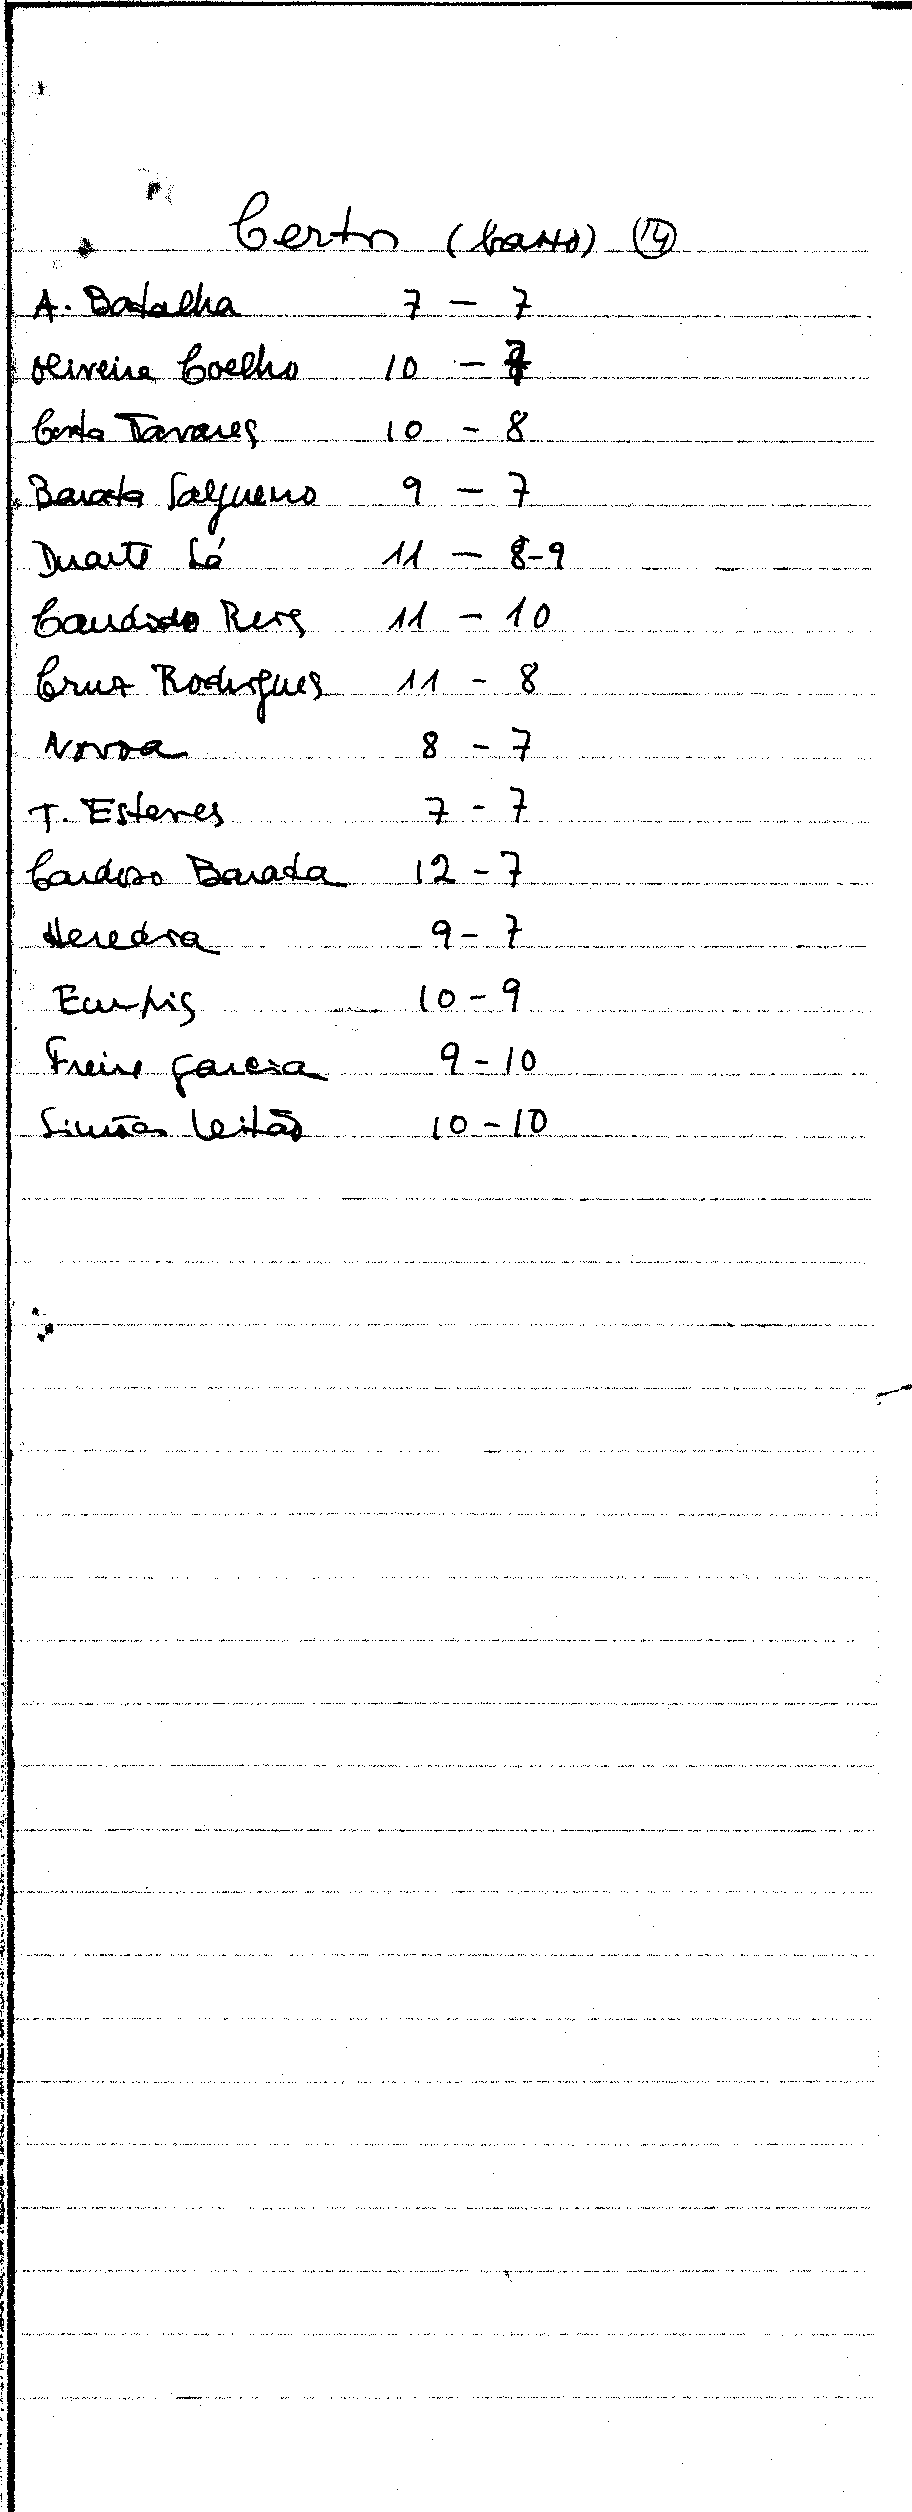 Certo (Casto) 14
A. Batalha 7 - 7
Oliveira Coelho 10 - 7
Costa Tavares 10 - 8
Barata Salgueiro 9 - 7
Duarte Sá 11 - 8-9
Candido Reis 11 - 10
Cruz Rodrigues 11 - 8
Novoa 8 - 7
T. Esteves 7 - 7
Cardoso Barata 12 - 7
Heredia 9 - 7
10 - 9
Freire Garcia 9 - 10
Simões Leitão 10 - 10